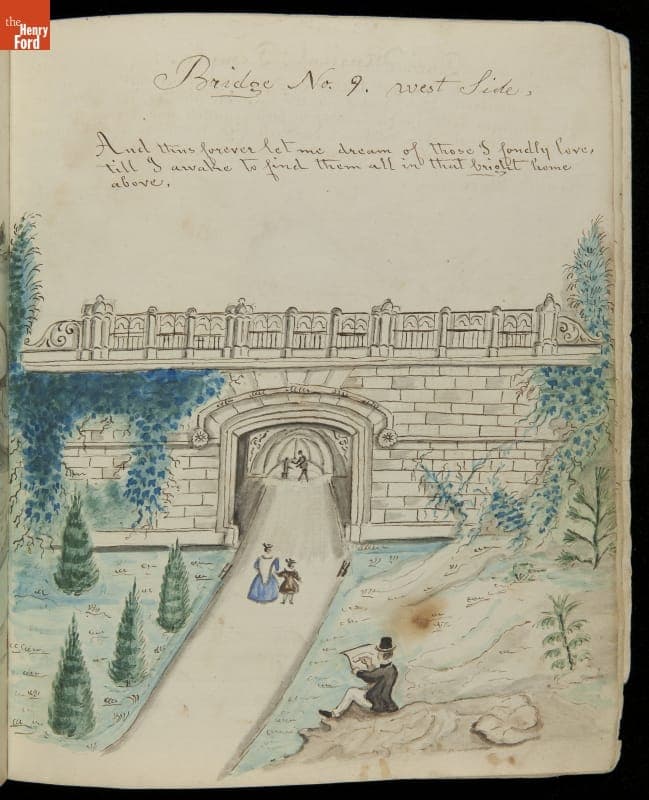 the
Henry
Ford
Bridge No. 9. west Side,
And thus forever let me dream of those I fondly love,
till I awake to find them all in that bright home
above.